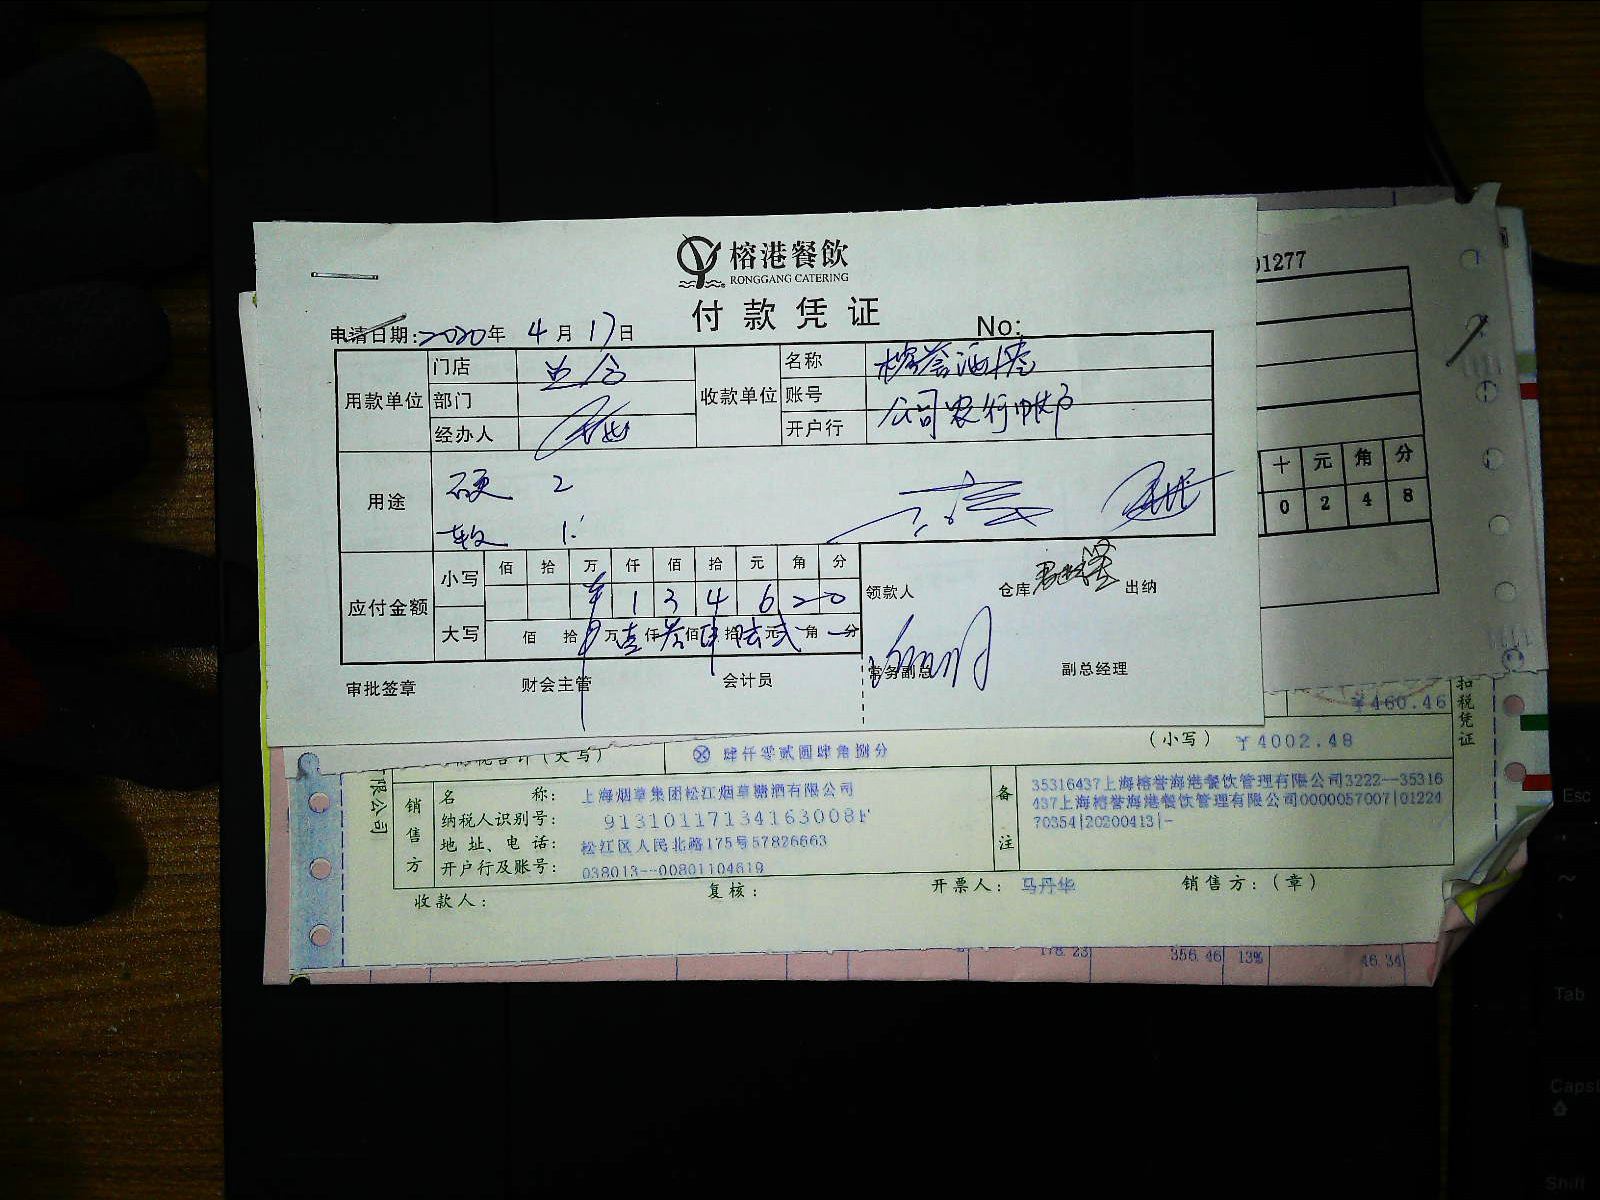 榕港餐飲
RONGGANG CATERING
付款凭证
申请日期:2020年 4月 17日 No:
用款单位 门店 收款单位 名称
部门 账号
经办人 开户行 公司农行帐户
用途 硬 2
软 1
应付金额 小写 佰 拾 万 仟 佰 拾 元 角 分
¥ 1 3 4 6 2 0
大写 佰 拾 万 壹 仟 叁 佰 肆 拾 陆 元 贰 角 分
领款人 仓库 出纳
审批签章 财会主管 会计员 常务副总 副总经理
01277
十 元 角 分
0 2 4 8
¥460.46
扣税凭证
价税合计(大写) ⊗ 肆仟零贰圆肆角捌分 (小写) ¥4002.48
限公司
销售方
名 称: 上海烟草集团松江烟草糖酒有限公司
纳税人识别号: 91310117134163008F
地 址、电 话: 松江区人民北路175号57826663
开户行及账号: 038013--00801104619
备注
35316437上海榕誉海港餐饮管理有限公司3222--35316
437上海榕誉海港餐饮管理有限公司0000057007|01224
70354|20200413|-
收款人: 复核: 开票人: 马丹华 销售方:(章)
178.23 356.46 13% 46.34
Esc
~
Tab
Caps
Shift